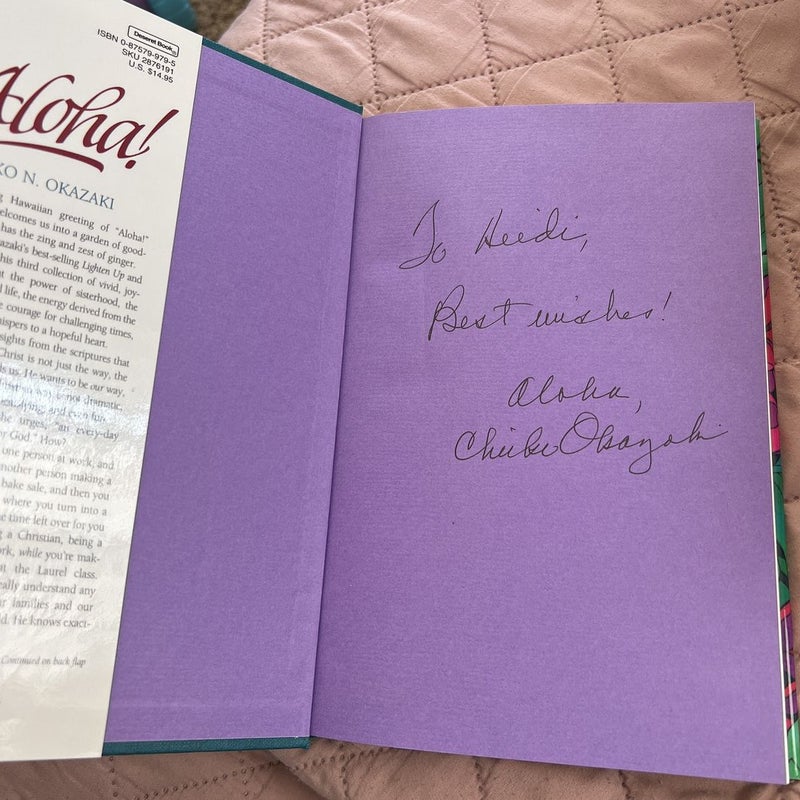 Deseret Book
ISBN 0-87579-979-5
SKU 2876191
U.S. $14.95
Aloha!
KO N. OKAZAKI
Hawaiian greeting of "Aloha!"
elcomes us into a garden of good-
has the zing and zest of ginger.
azaki's best-selling Lighten Up and
his third collection of vivid, joy-
t the power of sisterhood, the
l life, the energy derived from the
e courage for challenging times,
hispers to a hopeful heart.
sights from the scriptures that
Christ is not just the way, the
ds us. He wants to be our way,
way is not dramatic,
and even fun.
she urges, "an every-day
or God." How?
one person at work, and
nother person making a
bake sale, and then you
where you turn into a
e time left over for you
g a Christian, being a
rk, while you're mak-
at the Laurel class.
eally understand any
ur families and our
d. He knows exact-
Continued on back flap
To Heidi,
Best wishes!
Aloha,
Chieko Okazaki